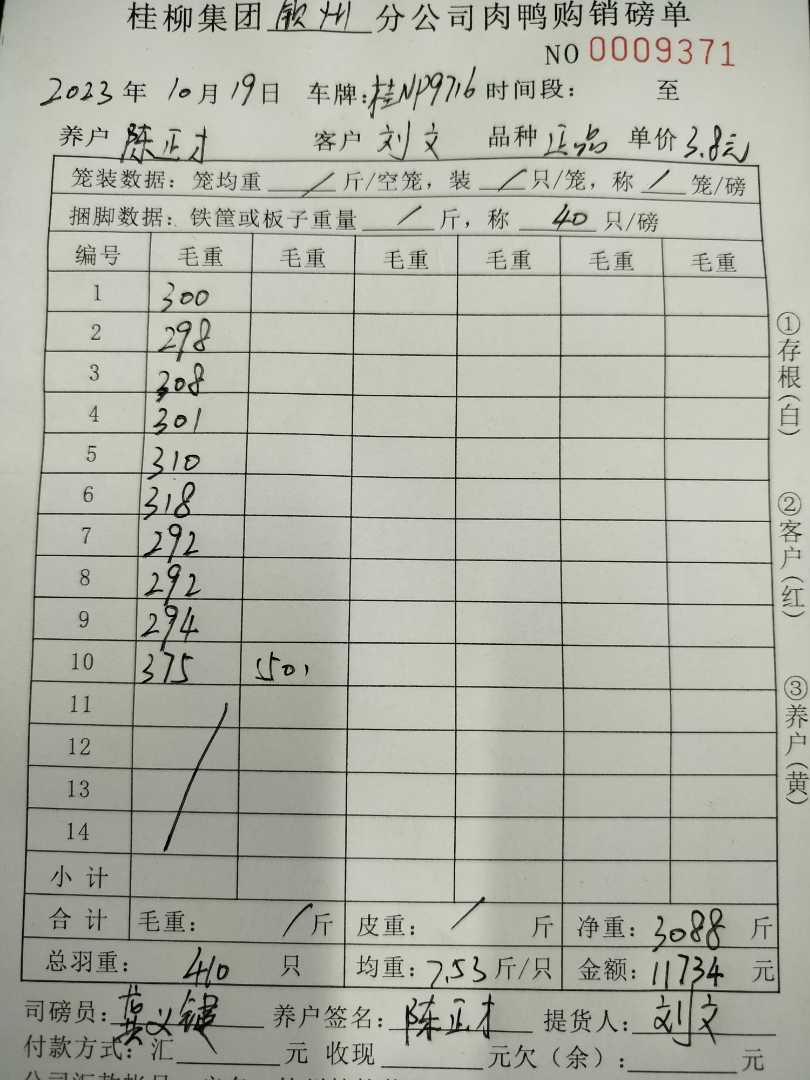 桂柳集团钦州分公司肉鸭购销磅单
NO 0009371
2023年10月19日 车牌:桂NP9716 时间段: 至
养户 陈正才 客户 刘文 品种 正品 单价 3.8元
笼装数据: 笼均重 / 斤/空笼, 装 / 只/笼, 称 / 笼/磅
捆脚数据: 铁筐或板子重量 / 斤, 称 40 只/磅
编号 毛重 毛重 毛重 毛重 毛重 毛重
1 300
2 298
3 308
4 301
5 310
6 318
7 292
8 292
9 294
10 375 (50)
11
12
13
14
小计
合计 毛重: / 斤 皮重: / 斤 净重: 3088 斤
总羽重: 410 只 均重: 7.53 斤/只 金额: 11734 元
司磅员: 养户签名: 陈正才 提货人: 刘文
付款方式: 汇 元 收现 元欠(余): 元
①存根(白)
②客户(红)
③养户(黄)